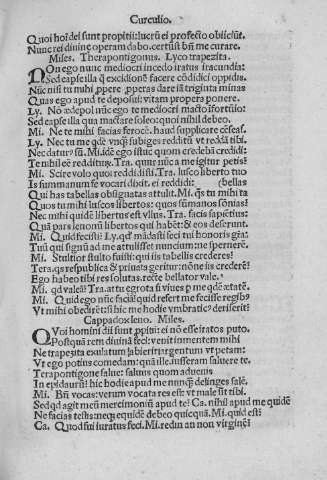 Curculio.
Quoi hoī dei sunt propitii: lucrū ei profecto obiiciūt.
Nunc rei divinę operam dabo. certūst bñ me curare.
Miles. Therapontigonus. Lyco trapezita.
Non ego nunc mediocri incedo iratus iracundia:
Sed eapse illa q̄ excidionē facere cōdidici oppidis.
Nūc nisi tu mihi ppere pperas dare iā triginta minas
Quas ego apud te deposui: vitam propera ponere.
Ly. Nō ædepol nūc ego te mediocri macto ĩfortūio:
Sed eapse illa qua mactare soleo: quoi nihil debeo.
Mi. Ne te mihi facias ferocē. haud supplicare cēseas.
Ly. Nec tu me qdē vnq̄ subiges redditū vt reddā tibi.
Nec datur⁹ sū. Mi. idē ego istuc quom crededā credidi:
Te nihil eē redditurū. Tra. qur nūc a me igitur petis?
Mi. Scire volo quoi reddidisti. Tra. lusco liberto tuo
Is summanum se vocari dixit. ei reddidi: (bellas
Qui has tabellas obsignatas attulit. Mi. q̄s tu mihi ta
Quos tu mihi luscos libertos: quos sūmanos sōnias?
Nec mihi quidē libertus est vllus. Tra. facis sapiētius:
Quā pars lenonū libertos qui habēt: & eos deserunt.
Mi. Quid fecisti? Ly. qd' mādasti feci tui honoris grã:
Tuū qui signū ad me attulisset nuncium: ne spernerē.
Mi. Stultior stulto fuisti: qui iis tabellis crederes?
Tra. qs respublica & priuata geritur: nōne iis crederē?
Ego habeo tibi res solutas. recte bellator vale.
Mi. qd valeā? Tra. at tu ęgrota si viues p me qdē ætatē.
Mi. Quid ego nūc faciā? quid refert me fecisse regib⁹
Vt mihi obedirēt: si hic me hodie vmbratic⁹ deriserit?
Cappadox leno. Miles.
Quoi homini dii sunt ppitii: ei nō esse iratos puto.
Postquā rem diuinā feci: venit in mentem mihi
Ne trapezita exulatum abierit: argentum vt petam:
Vt ego potius comedam: quā ille. iusseram saluere te.
Terapontigone salue: saluus quom aduenis
In epidaurū: hic hodie apud me nunquā delinges salē.
Mi. Bñ vocas: verum vocata res est: vt male sit tibi.
Sed qd agit meū mercimoniū apud te? Ca. nihil apud me quidē
Ne facias testis: neq equidē debeo quicquā. Mi. quid est?
Ca. Quod fui iuratus feci. Mi. reddin an non virginē?